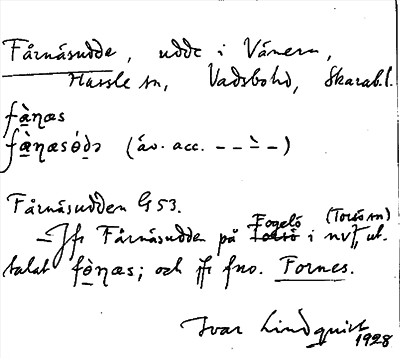 Fårnäsudde, udde i Vänern,
Hassle sn, Vadsboho, Skarab.l.
fà̱ɳæs
fæ̱̀ɳæsó̱də (äv. acc. – – ∸ –)
Fårnäsudden G 53.
– Jfr Fårnäsudden på Fogelö i nv, ut- (Torsö sn)
talat fö̱̀ɳæs; och jfr fno. Fornes.
Ivar Lindquist
1928